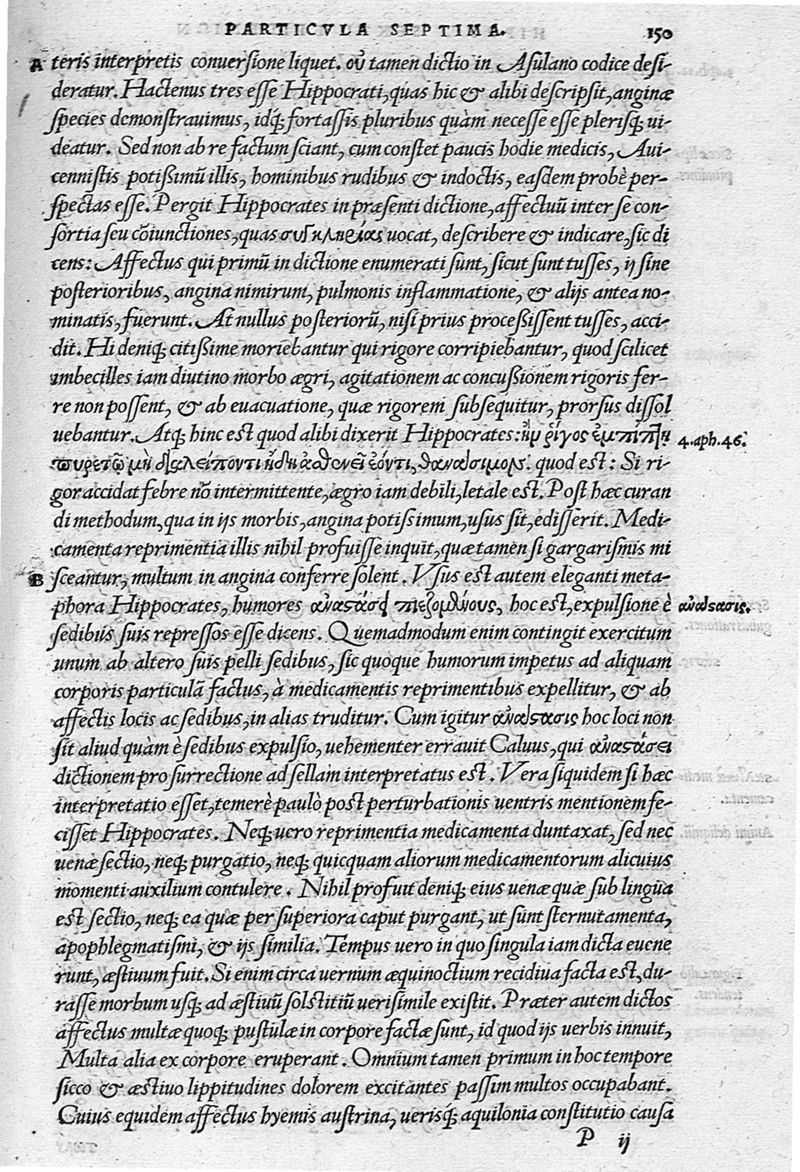 PARTICVLA SEPTIMA. 150
A teris interpretis conuersione liquet. οὐ tamen dictio in Asulano codice desi-
deratur. Hactenus tres esse Hippocrati, quas hic & alibi descripsit, anginæ
species demonstrauimus, idq́; fortassis pluribus quàm necesse esse plerisq; ui-
deatur. Sed non ab re factum sciant, cum constet paucis hodie medicis, Aui-
cennistis potißimũ illis, hominibus rudibus & indoctis, easdem probè per-
spectas esse. Pergit Hippocrates in præsenti dictione, affectuũ inter se con-
sortia seu cõiunctiones, quas συγκληρίας uocat, describere & indicare, sic di
cens: Affectus qui primũ in dictione enumerati sunt, sicut sunt tusses, ij sine
posterioribus, angina nimirum, pulmonis inflammatione, & alijs antea no-
minatis, fuerunt. At nullus posteriorũ, nisi prius proceßissent tusses, acci-
dit. Hi deniq; citißime moriebantur qui rigore corripiebantur, quod scilicet
imbecilles iam diutino morbo ægri, agitationem ac concußionem rigoris fer-
re non possent, & ab euacuatione, quæ rigorem subsequitur, prorsus dissol
uebantur. Atq; hinc est quod alibi dixerit Hippocrates: ἢν ῥίγος ἐμπίπτῃ 4. aph. 46.
πυρετῷ μὴ διαλείποντι ἤδη ἀσθενεῖ ἐόντι, θανάσιμον. quod est: Si ri-
gor accidat febre nõ intermittente, ægro iam debili, letale est. Post hæc curan
di methodum, qua in ijs morbis, angina potissimum, usus sit, edisserit. Medi-
camenta reprimentia illis nihil profuisse inquit, quæ tamen si gargarismis mi
B sceantur, multum in angina conferre solent. Vsus est autem eleganti meta-
phora Hippocrates, humores ἀναστάσει πιεζομένους, hoc est, expulsione è ἀνάστασις.
sedibus suis repressos esse dicens. Quemadmodum enim contingit exercitum
unum ab altero suis pelli sedibus, sic quoque humorum impetus ad aliquam
corporis particulã factus, à medicamentis reprimentibus expellitur, & ab
affectis locis ac sedibus, in alias truditur. Cum igitur ἀνάστασις hoc loci non
sit aliud quàm è sedibus expulsio, uehementer errauit Caluus, qui ἀναστάσει
dictionem pro surrectione ad sellam interpretatus est. Vera siquidem si hæc
interpretatio esset, temerè paulò post perturbationis uentris mentionem fe-
cisset Hippocrates. Neq; uero reprimentia medicamenta duntaxat, sed nec
uenæ sectio, neq; purgatio, neq; quicquam aliorum medicamentorum alicuius
momenti auxilium contulere. Nihil profuit deniq; eius uenæ quæ sub lingua
est sectio, neq; ea quæ per superiora caput purgant, ut sunt sternutamenta,
apophlegmatismi, & ijs similia. Tempus uero in quo singula iam dicta euene
runt, æstiuum fuit. Si enim circa uernum æquinoctium recidiua facta est, du-
rasse morbum usq; ad æstiuũ solstitiũ uerisimile existit. Præter autem dictos
affectus multæ quoq; pustulæ in corpore factæ sunt, id quod ijs uerbis innuit,
Multa alia ex corpore eruperant. Omnium tamen primum in hoc tempore
sicco & æstiuo lippitudines dolorem excitantes passim multos occupabant.
Cuius equidem affectus hyemis austrina, uerisq; aquilonia constitutio causa
P ij